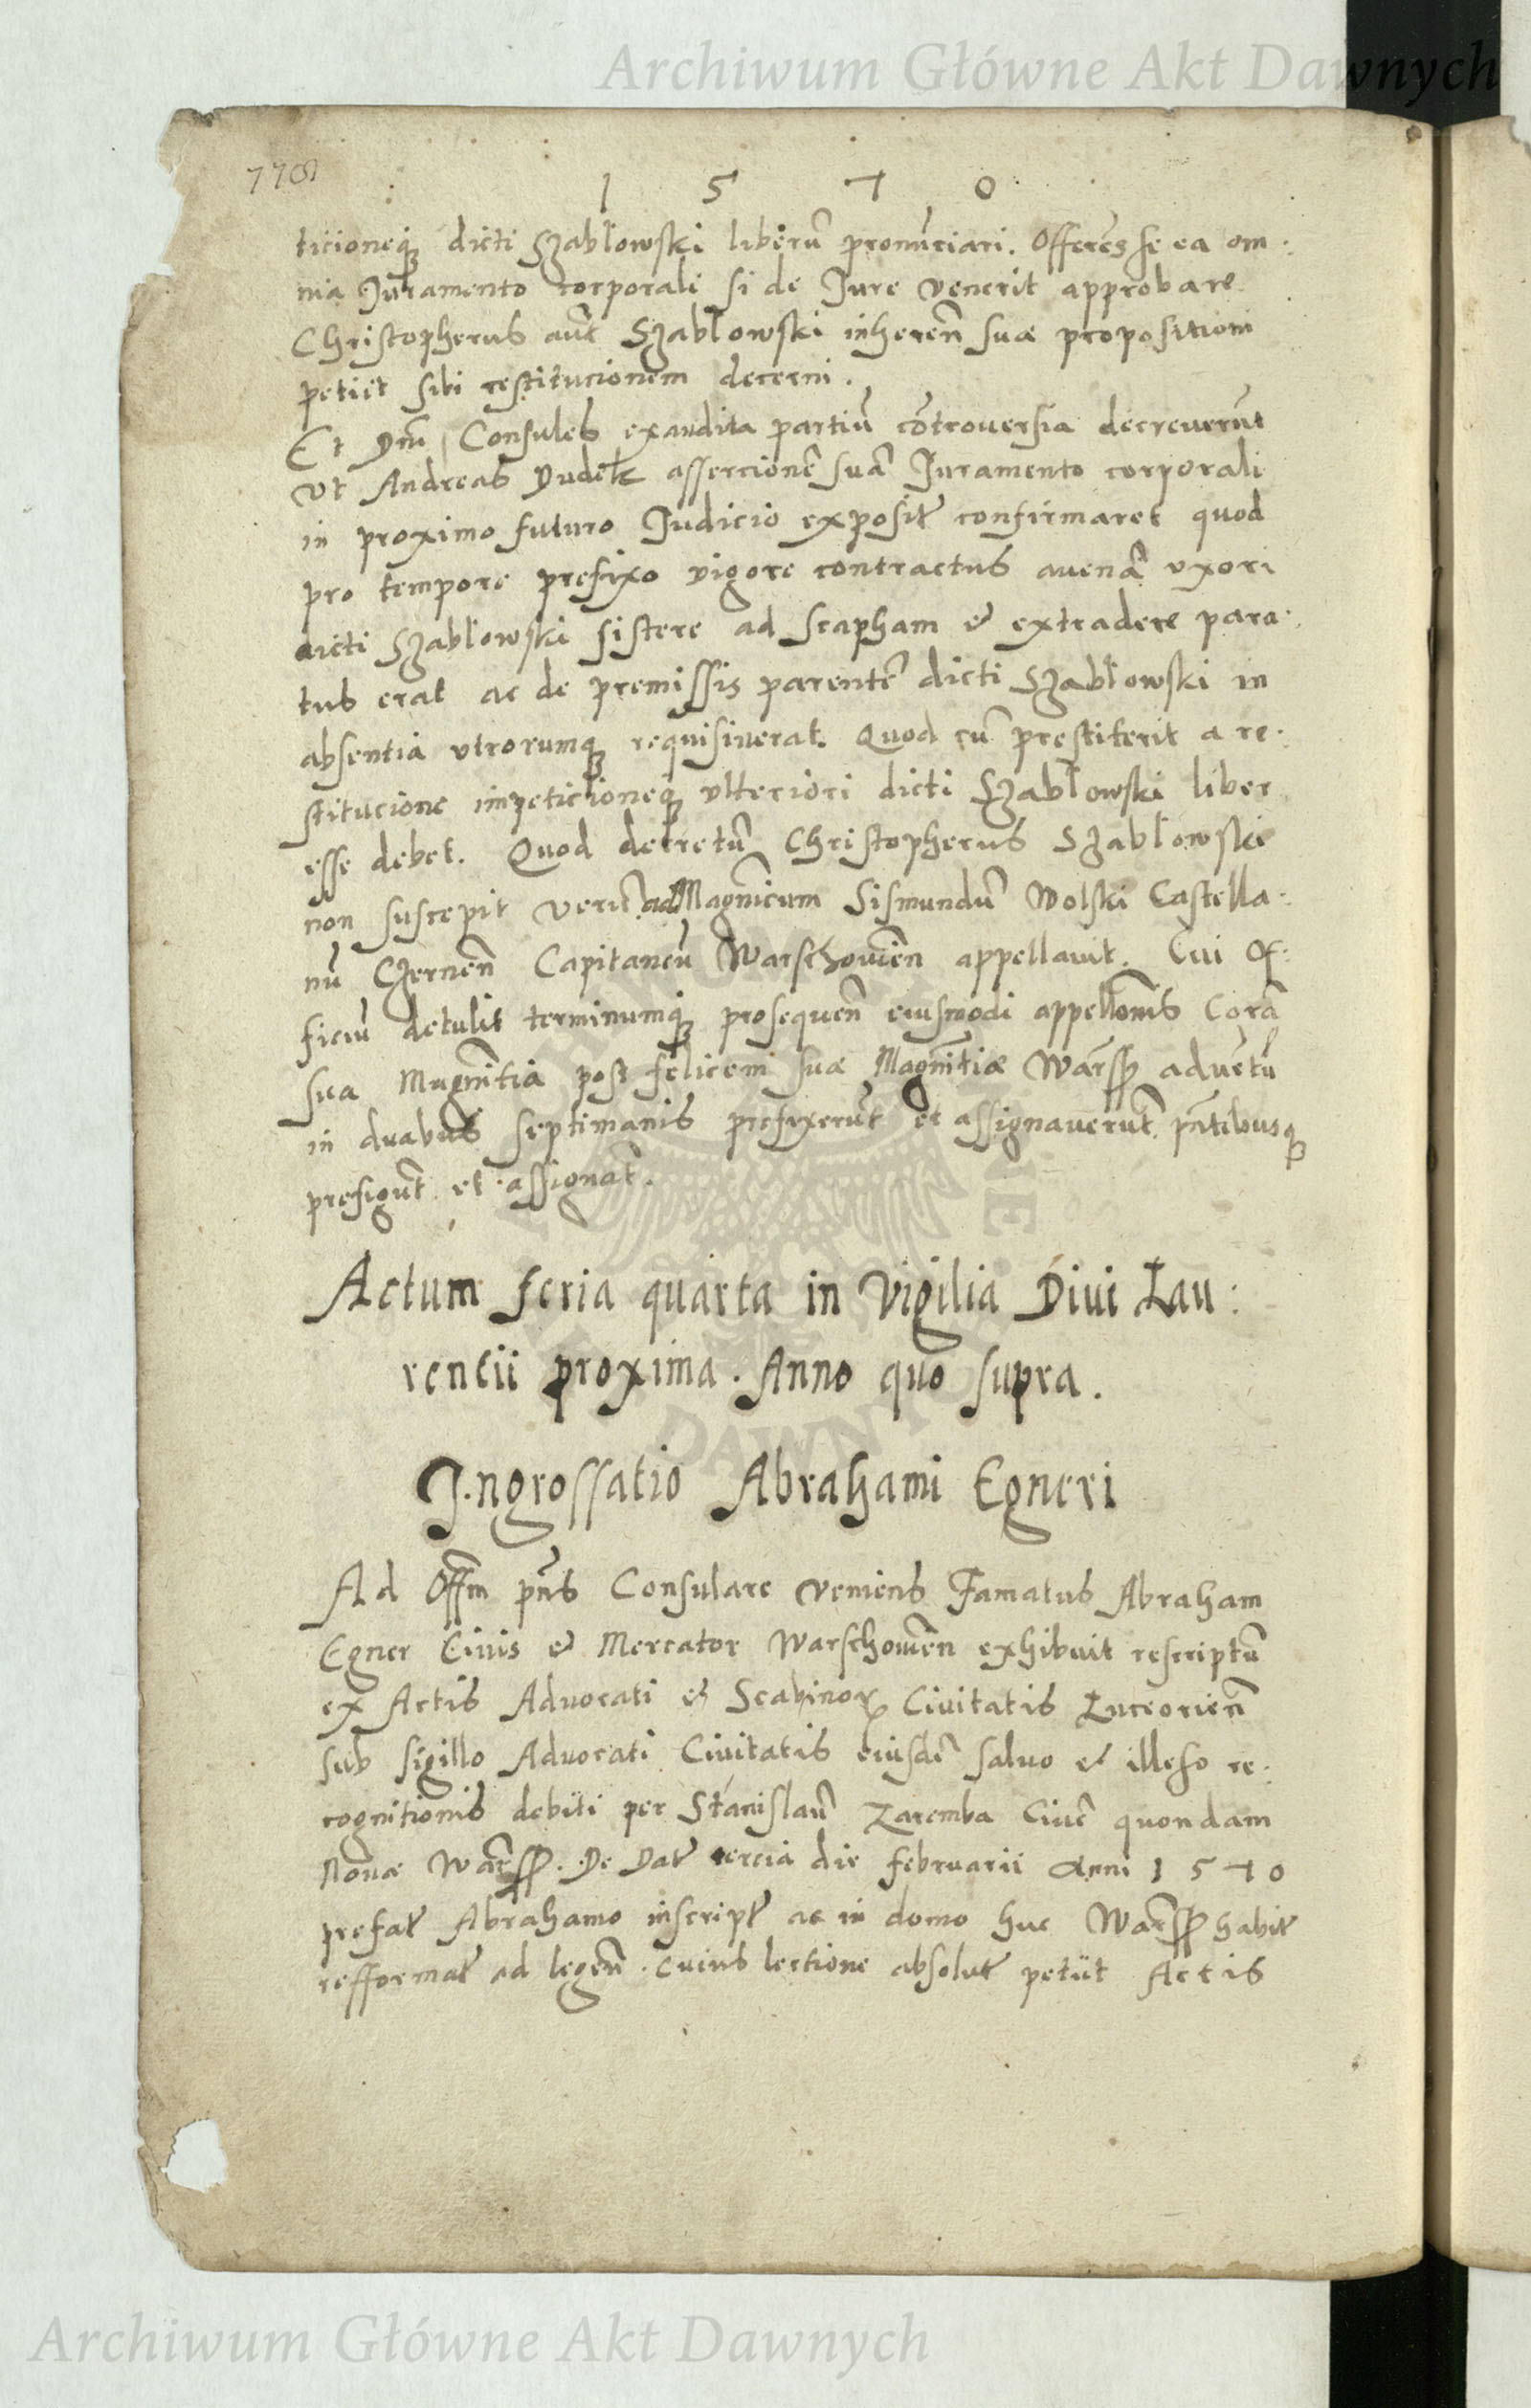 Archiwum Główne Akt Dawnych
1 5 7 0
ticioneq₃ dicti Szablowski liberū pronūciari. Offerēs se ea om:
nia Juramento corporali si de Jure venerit approbare
Christopherus aūt Szablowski inhereñ suæ propositioni
petiit sibi restitucionem decerni.
Et Dñi Consules exaudita partiū cōtroversia decreverūt
ut Andreas Dudek assercionē suā Juramento corporali
in proximo futuro Judicio exposit̃ confirmaret quod
pro tempore prefixo vigore contractus avenā uxori
dicti Szablowski sistere ad scapham & extradere para:
tus erat ac de premissis parentē dicti Szablowski in
absentia utrorumq₃ requisiverat. Quod cū prestiterit a re:
stitucione impeticioneq₃ ulteriori dicti Szablowski liber
esse debet. Quod decretū Christopherus Szablowski
non suscepit verū ad Magñicum Sismundū Wolski Castella:
nū Czerneñ Capitaneū Warschovieñ appellavit. Cui Of:
ficiū detulit terminumq₃ prosequeñ eiusmodi appellōnis Corā
sua Mugñitia post felicem suæ Magñitiæ Warss̃ advētū
in duabus septimanis prefixerūt et assignaverūt p̃ntibusq₃
prefigūt et assignāt.
Actum feria quarta in Vigilia Divi Lau:
rencii proxima. Anno quo supra.
Ingrossatio Abrahami Egneri
Ad Offm̃ p̃ns Consulare veniens Famatus Abraham
Egner Civis & Mercator Warschovieñ exhibuit rescriptū
ex Actis Advocati & Scabinoꝝ Civitatis Luceorieñ
sub sigillo Advocati Civitatis eiusdē salvo & illeso re:
cognitionis debiti per Stanislaū Zaremba Civē quondam
Novæ Warss̃. De Dat̃ tercia die februarii Anni 1570
prefat̃ Abrahamo inscript̃ ac in domo huc Warss̃ habit̃
refformat̃ ad legeñ. cuius lectione absolut̃ petiit Actis
Archiwum Główne Akt Dawnych